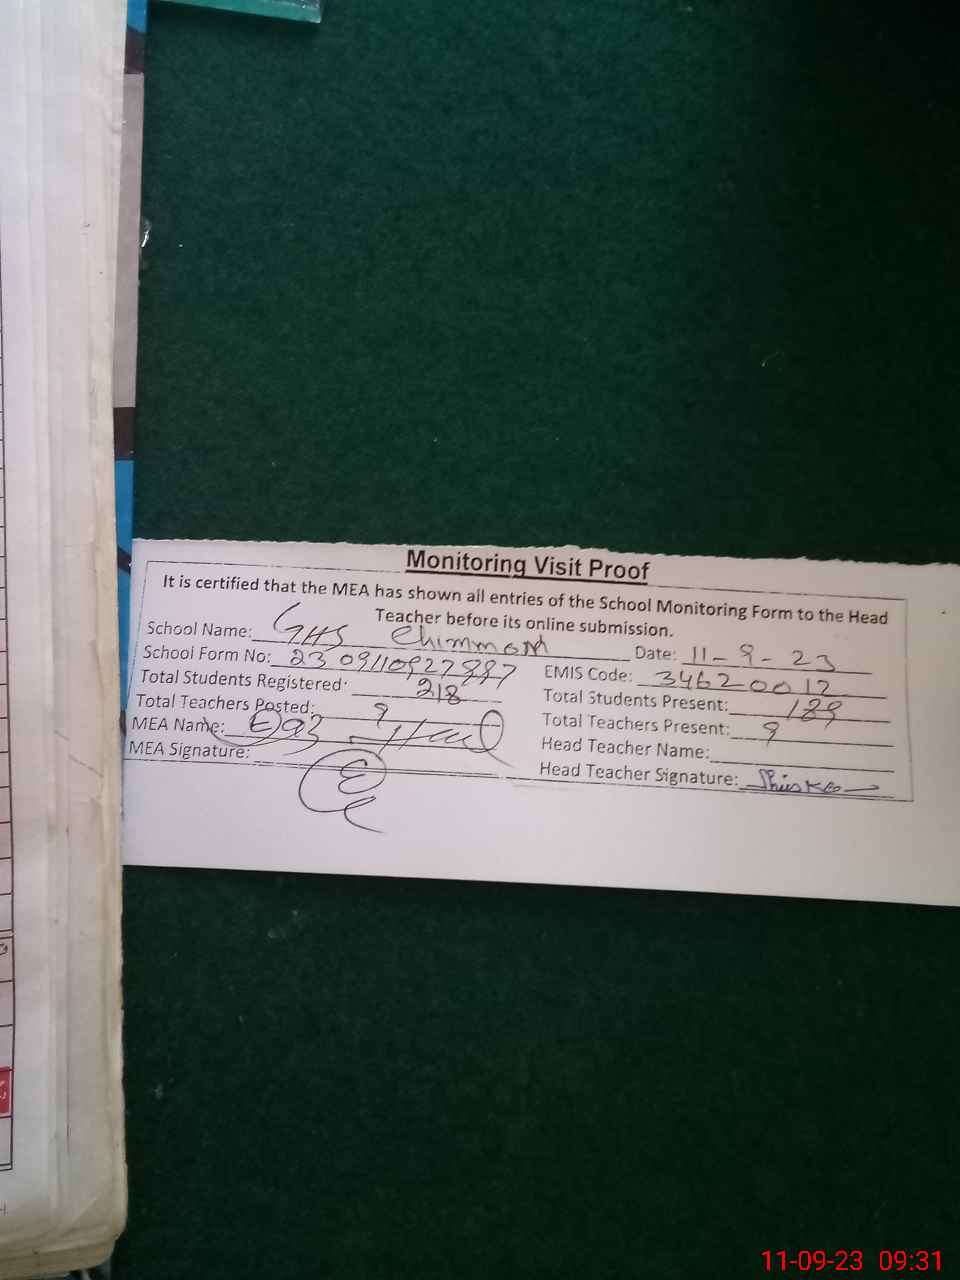 Monitoring Visit Proof
It is certified that the MEA has shown all entries of the School Monitoring Form to the Head
Teacher before its online submission.
School Name: GHS Date: 11-9-23
School Form No: EMIS Code: 34620012
Total Students Registered: 218 Total Students Present: 189
Total Teachers Posted: 9 Total Teachers Present: 9
MEA Name: Head Teacher Name:
MEA Signature: Head Teacher Signature:
11-09-23 09:31